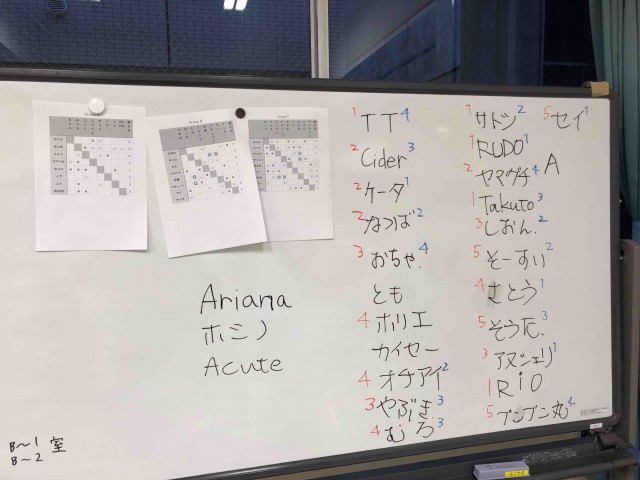 Ariana
ホシノ
Acute
B～1 室
B～2
1 TT 4
2 Cider 3
2 ケータ 1
2 なつば 2
3 おちゃ. 4
とも
4 ホリエ
カイセー
4 オチアイ 2
3 やぶき. 3
4 むろ 3
1 サトシ 2
1 RUDO 1
2 ヤマグチ 4
1 Takuto 3
3 しおん. 2
5 そーすい 2
4 さとう 1
5 そう 3
3 アヌシェリ 1
1 RiO
5 プンプン丸 4
5 セイ 1
A